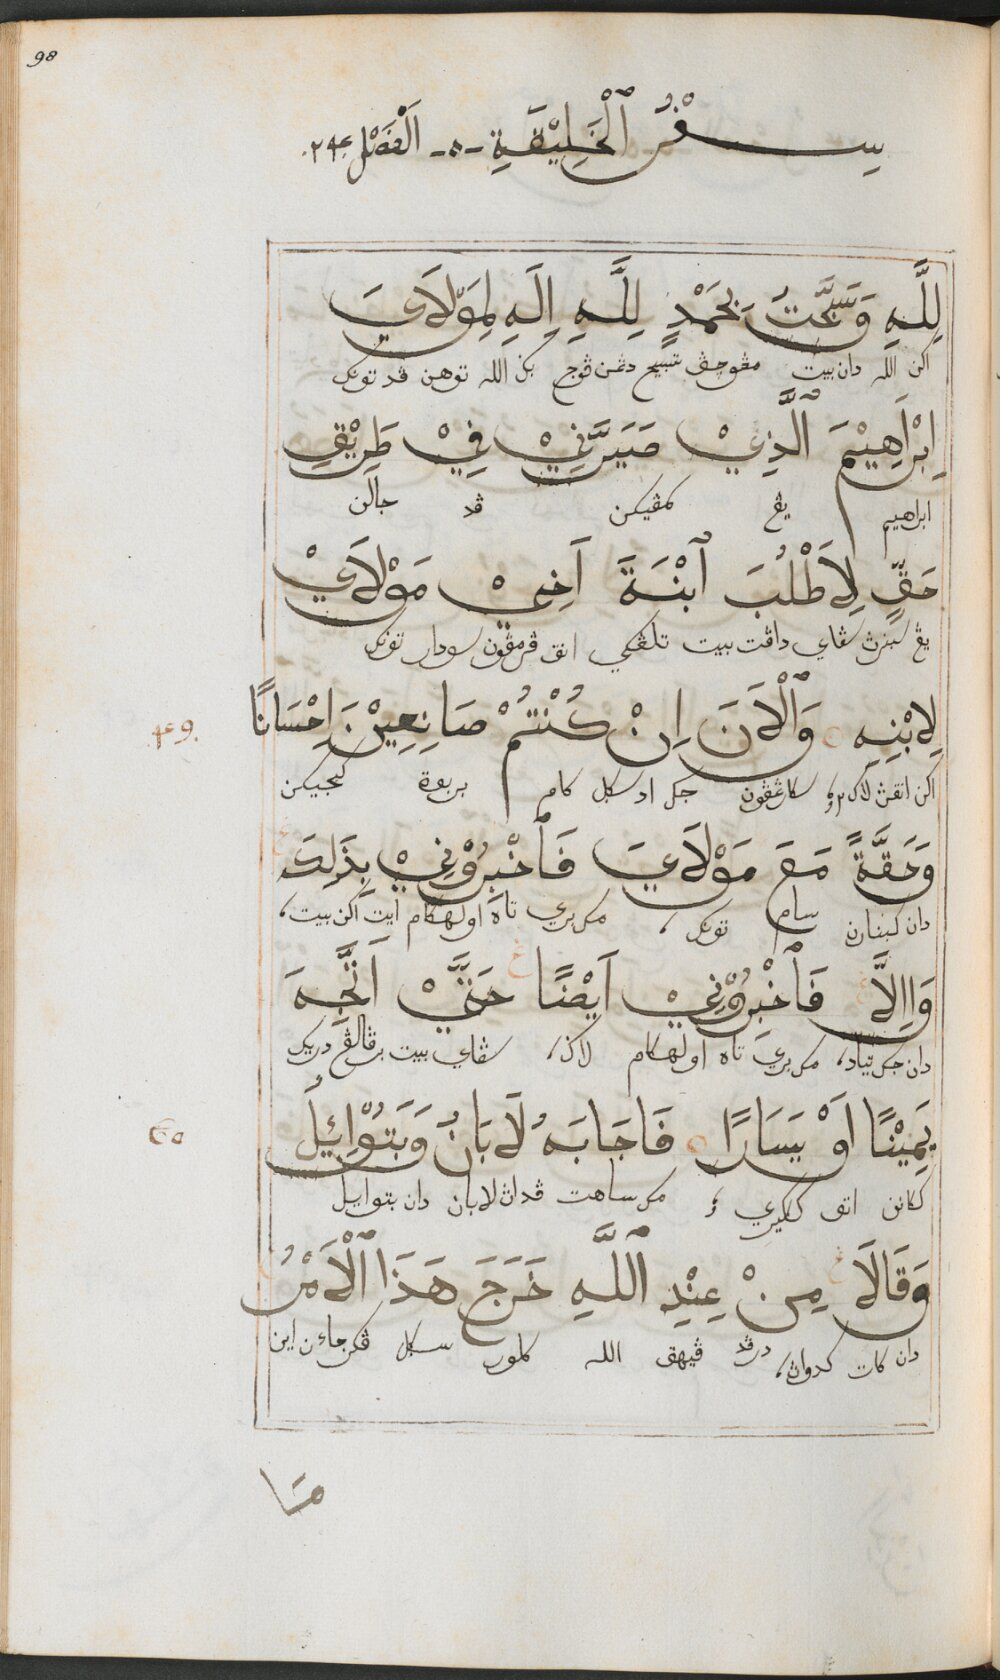 98
سِفْرُ ٱلْخَلِيْقَةِ -٥- اَلْفَصْل ٢٤
لِلَّهِ وَسَبَّحْتُ بِحَمْدٍ لِلَّهِ اِلَهِ لِمَوْلَايَ
اکن الله دان بيت مڠوچڤ تسبيح دڠن ڤوج بڬ الله توهن ڤد تونکو
اِبْرَاهِيْمَ ٱلَّذِيْ صَيَّرَنِيْ فِيْ طَرِيْقِ
ابراهيم يڠ کمڤيکن ڤد جالن
حَقٍّ لِاَطْلُبَ ٱبْنَةَ اَخِيْ مَوْلَايْ
يڠ سبنرڽ سڤاي داڤت بيت تلڤکي انق ڤرمڤون سودار تونکو
لِابْنِهِ وَٱلْاَنَ اِنْ كُنْتُمْ صَانِعِيْنَ اِحْسَانًا
اکن انقڽ لاک٢؛ سکارڠڤون جک اد سکل کام بربوة کبجيکن
٤٩.
وَحَقَّةً مَعَ مَوْلَايَ فَٱخْبِرُوْنِيْ بِذَلِكَ
دان کبنارن سام تونکو، مک بري تاه اولهکام ايت اکن بيت،
وَاِلَّا فَٱخْبِرُوْنِيْ اَيْضًا حَتَّيْ اَتَّجِهَ
دان جک تياد، مک بري تاه اولهکام لاݢ، سڤاي بيت برڤالڠ دريک
يَمِيْنًا اَوْ يَسَارًا فَاَجَابَهُ لَابَانُ وَبَتُوْاِئِيْلُ
ککانن اتو ککيري؛ مک ساهت ڤداڽ لابان دان بتوايل
٥٠
وَقَالَا مِنْ عِنْدِ ٱللَّهِ خَرَجَ هَذَا ٱلْاَمْرُ
دان کات کدواڽ، درڤد ڤيهق الله کلور سکل ڤکرجاءن اين
مَا